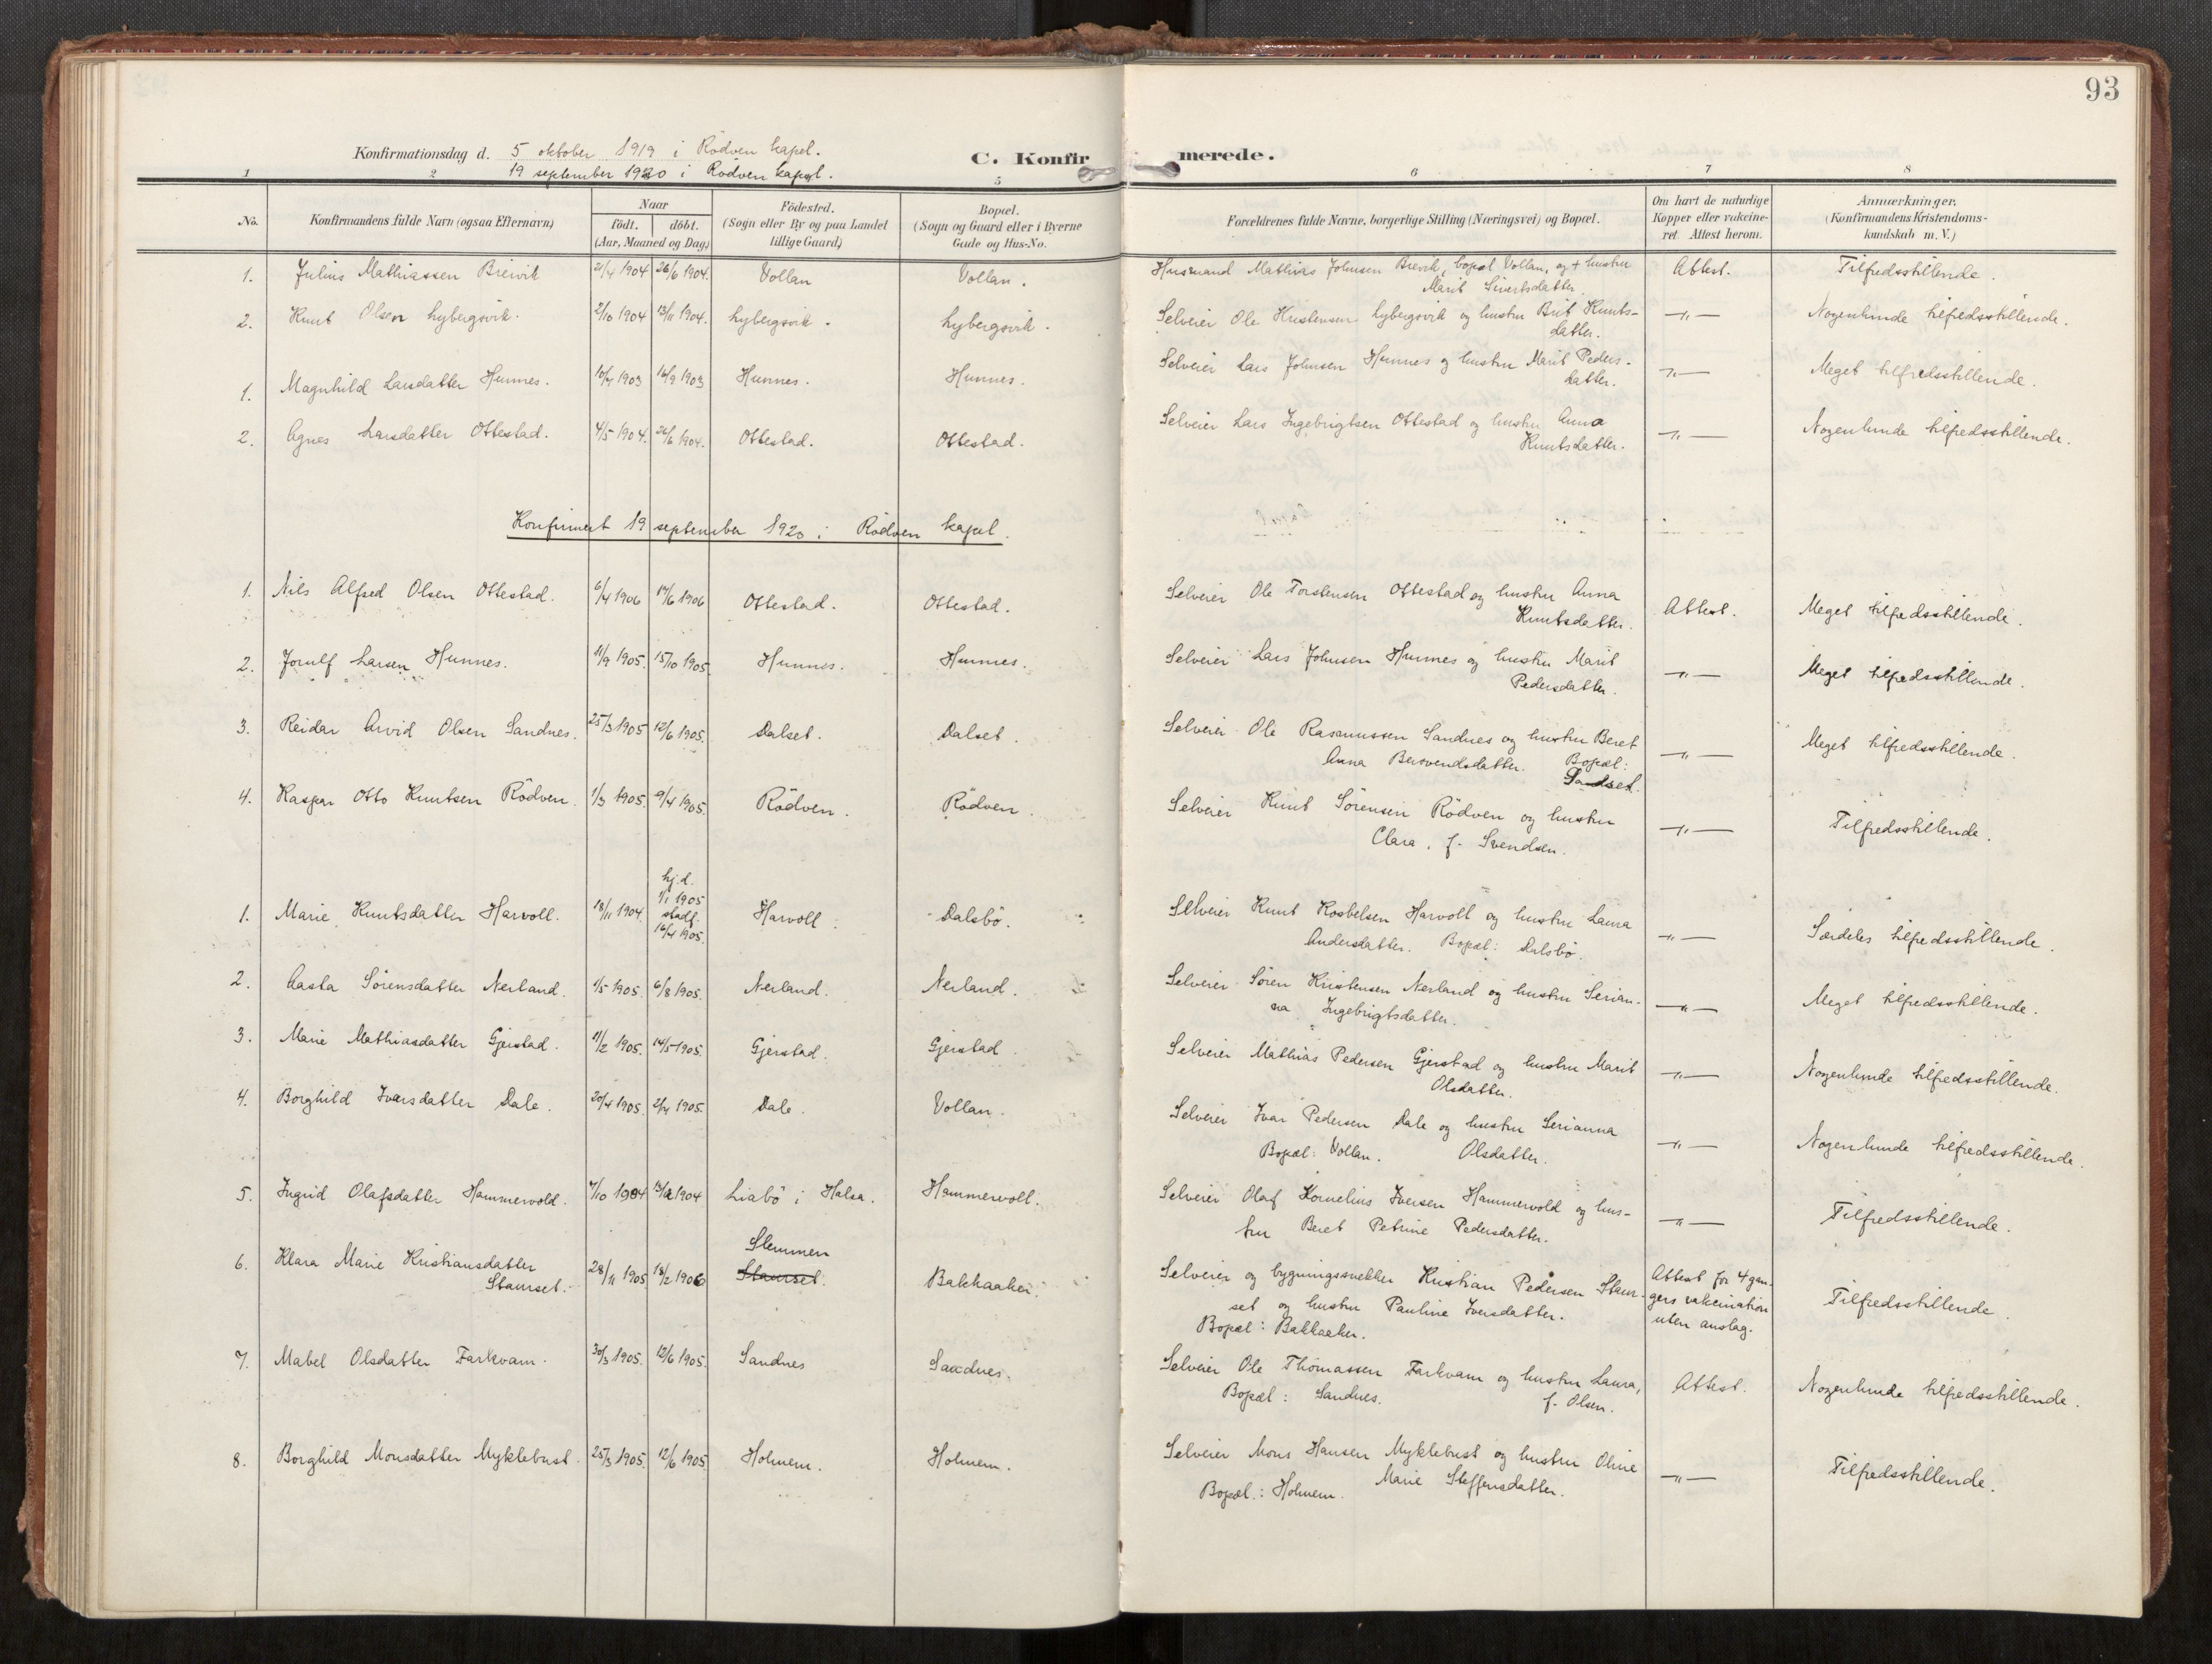 93
Konfirmationsdag d. 5 oktober 1919 i Rødven kapel.
19 september 1920 i Rødven kapel.
C. Konfirmerede.
1 2 5 6 7 8
No.
Konfirmandens fulde Navn (ogsaa Efternavn)
Naar
født. døbt.
(Aar, Maaned og Dag)
Fødested.
(Sogn eller By og paa Landet
tillige Gaard)
Bopæl.
(Sogn og Gaard eller i Byerne
Gade og Hus-No.
Forældrenes fulde Navne, borgerlige Stilling (Næringsvei) og Bopæl.
Om havt de naturlige
Kopper eller vakcine-
ret. Attest herom.
Anmærkninger.
(Konfirmandens Kristendoms-
kundskab m. V.)
1. Julius Mathiassen Breivik 21/4 1904 26/6 1904. Vollan Vollan. Husmand Mathias Johnsen Brevik, bopæl Vollan, og + hustru Attest. Tilfredsstillende.
Marit Sivertsdatter.
2. Knut Olsen Lybergsvik. 2/10 1904 13/11 1904. Lybergsvik. Lybergsvik. Selveier Ole Kristensen Lybergsvik og hustru Brit Knuts- —"— Nogenlunde tilfredsstillende.
datter.
1. Magnhild Larsdatter Hunnes. 10/7 1903 16/9 1903 Hunnes. Hunnes. Selveier Lars Johnsen Hunnes og hustru Marit Peders- —"— Meget tilfredsstillende.
datter.
2. Agnes Larsdatter Ottestad. 4/5 1904. 26/6 1904. Ottestad. Ottestad. Selveier Lars Ingebrigtsen Ottestad og hustru Anna —"— Nogenlunde tilfredsstillende.
Knutsdatter.
Konfirmert 19 september 1920 i Rødven kapel.
1. Nils Alfred Olsen Ottestad. 6/4 1906 17/6 1906 Ottestad. Ottestad. Selveier Ole Torstensen Ottestad og hustru Anna Attest. Meget tilfredsstillende.
Knutsdatter.
2. Jorulf Larsen Hunnes. 11/9 1905. 15/10 1905. Hunnes. Hunnes. Selveier Lars Johnsen Hunnes og hustru Marit —"— Meget tilfredsstillende.
Pedersdatter.
3. Reidar Arvid Olsen Sandnes. 25/3 1905 12/6 1905. Dalset. Dalset. Selveier Ole Rasmussen Sandnes og hustru Beret —"— Meget tilfredsstillende.
Anna Bersvendsdatter. Bopæl:
4. Kaspar Otto Knutsen Rødven. 1/3 1905. 9/4 1905. Rødven. Rødven. Selveier Knut Sørensen Rødven og hustru —"— Tilfredsstillende.
Clara, f. Svendsen.
hj.d.
1/1 1905
stadf.
16/4 1905.
1. Marie Knutsdatter Harvoll. 18/11 1904. Harvoll. Dalsbø. Selveier Knut Kosbelsen Harvoll og hustru Laura —"— Særdeles tilfredsstillende.
Andersdatter. Bopæl: Dalsbø.
2. Aasta Sørensdatter Nerland. 1/5 1905. 6/8 1905. Nerland. Nerland. Selveier Søren Kristensen Nerland og hustru Serian- —"— Meget tilfredsstillende.
na Ingebrigtsdatter.
3. Marie Mathiasdatter Gjerstad. 11/2 1905. 14/5 1905. Gjerstad. Gjerstad. Selveier Mathias Pedersen Gjerstad og hustru Marit —"— Nogenlunde tilfredsstillende.
Olsdatter.
4. Borghild Ivarsdatter Dale. 20/4 1905. 2/7 1905. Dale. Vollan. Selveier Ivar Pedersen Dale og hustru Serianna —"— Nogenlunde tilfredsstillende.
Bopæl: Vollan. Olsdatter.
5. Ingrid Olafsdatter Hammervold. 7/10 1904 1904 Liabø i Halsa. Hammervoll. Selveier Olaf Kornelius Iversen Hammervold og hus- —"— Tilfredsstillende.
tru Beret Petrine Pedersdatter.
6. Klara Marie Kristiansdatter
Staurset. 28/11 1905 18/2 1906 Stemmen
Staurset. Bakkaaker. Selveier og bygningssnekker Kristian Pedersen Staur-
set og hustru Pauline Iversdatter.
Bopæl: Bakkaaker.
Attest for 4 gan-
gers vakcination
uten anslag.
Tilfredsstillende
7. Mabel Olsdatter Farkvam. 30/3 1905. 12/6 1905. Sandnes Sandnes. Selveier Ole Thomassen Farkvam og hustru Laura, Attest. Nogenlunde tilfredsstillende.
Bopæl: Sandnes. f. Olsen.
8. Borghild Monsdatter Myklebust. 25/3 1905. 12/6 1905. Holmem. Holmem. Selveier Mons Hansen Myklebust og hustru Oline —"— Tilfredsstillende.
Marie Steffensdatter.
Bopæl.: Holmem.